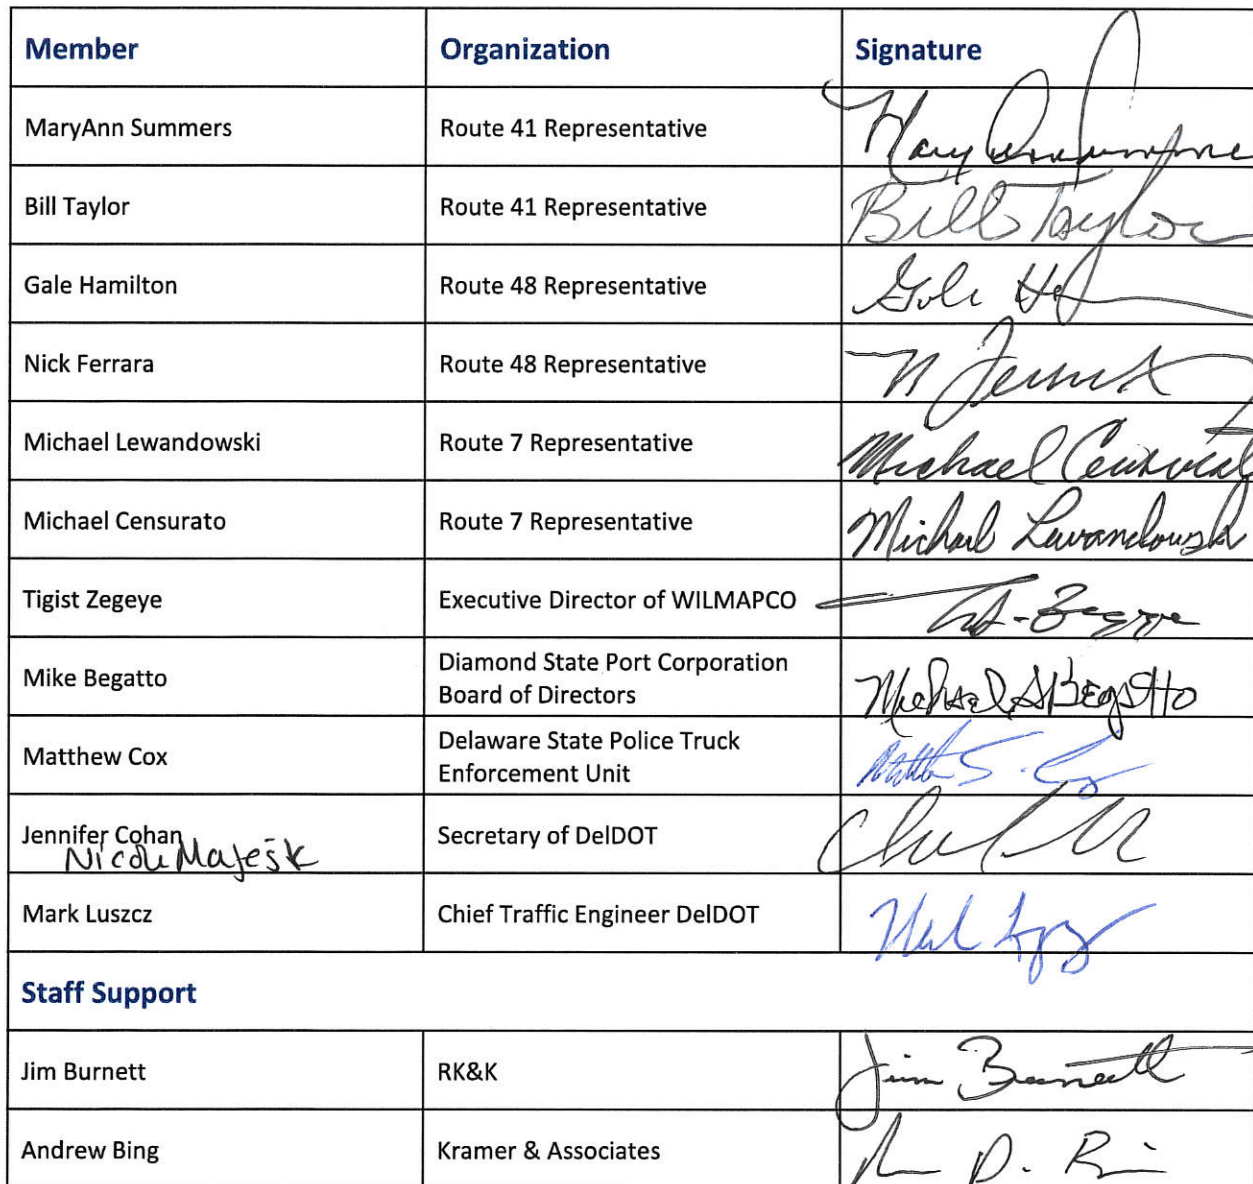 Member Organization Signature
MaryAnn Summers Route 41 Representative
Bill Taylor Route 41 Representative Bill Taylor
Gale Hamilton Route 48 Representative
Nick Ferrara Route 48 Representative
Michael Lewandowski Route 7 Representative Michael
Michael Censurato Route 7 Representative Michael Lewandowski
Tigist Zegeye Executive Director of WILMAPCO
Mike Begatto Diamond State Port Corporation
Board of Directors Michael
Matthew Cox Delaware State Police Truck
Enforcement Unit
Jennifer Cohan Secretary of DelDOT
Nicole Majesk
Mark Luszcz Chief Traffic Engineer DelDOT
Staff Support
Jim Burnett RK&K Jim Burnett
Andrew Bing Kramer & Associates